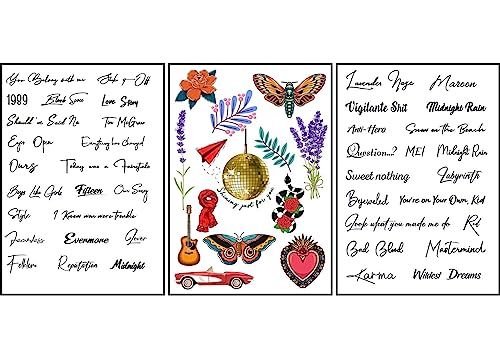 You Belong with me Shake it Off
1999 Blank Space Love Story
Should've Said No Tim McGraw
Eyes Open Everything has Changed
Ours Today was a Fairytale
Boys Like Girls Fifteen Our Song
Style I Knew you were trouble
Fearless Evermore Lover
Folklore Reputation Midnight
Shining just for you
Lavender Haze Maroon
Vigilante Shit Midnight Rain
Anti-Hero Snow on the Beach
Question...? ME! Midnight Rain
Sweet nothing Labyrinth
Bejeweled You're on Your Own, Kid
Look what you made me do Red
Bad Blood Mastermind
Karma Wildest Dreams